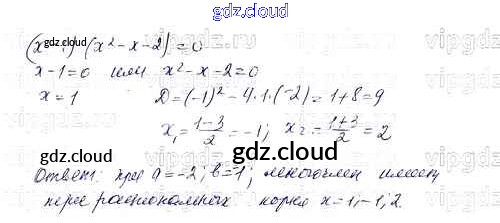 gdz.cloud
(x-1)(x²-x-2)=0
x-1=0 или x²-x-2=0
x=1 D=(-1)²-4·1·(-2)=1+8=9
x₁=(1-3)/2=-1; x₂=(1+3)/2=2
Ответ: при a=-2; b=-1; многочлен имеет
рациональных корня x=1;-1;2
gdz.cloud
gdz.cloud
gdz.cloud
vipgdz